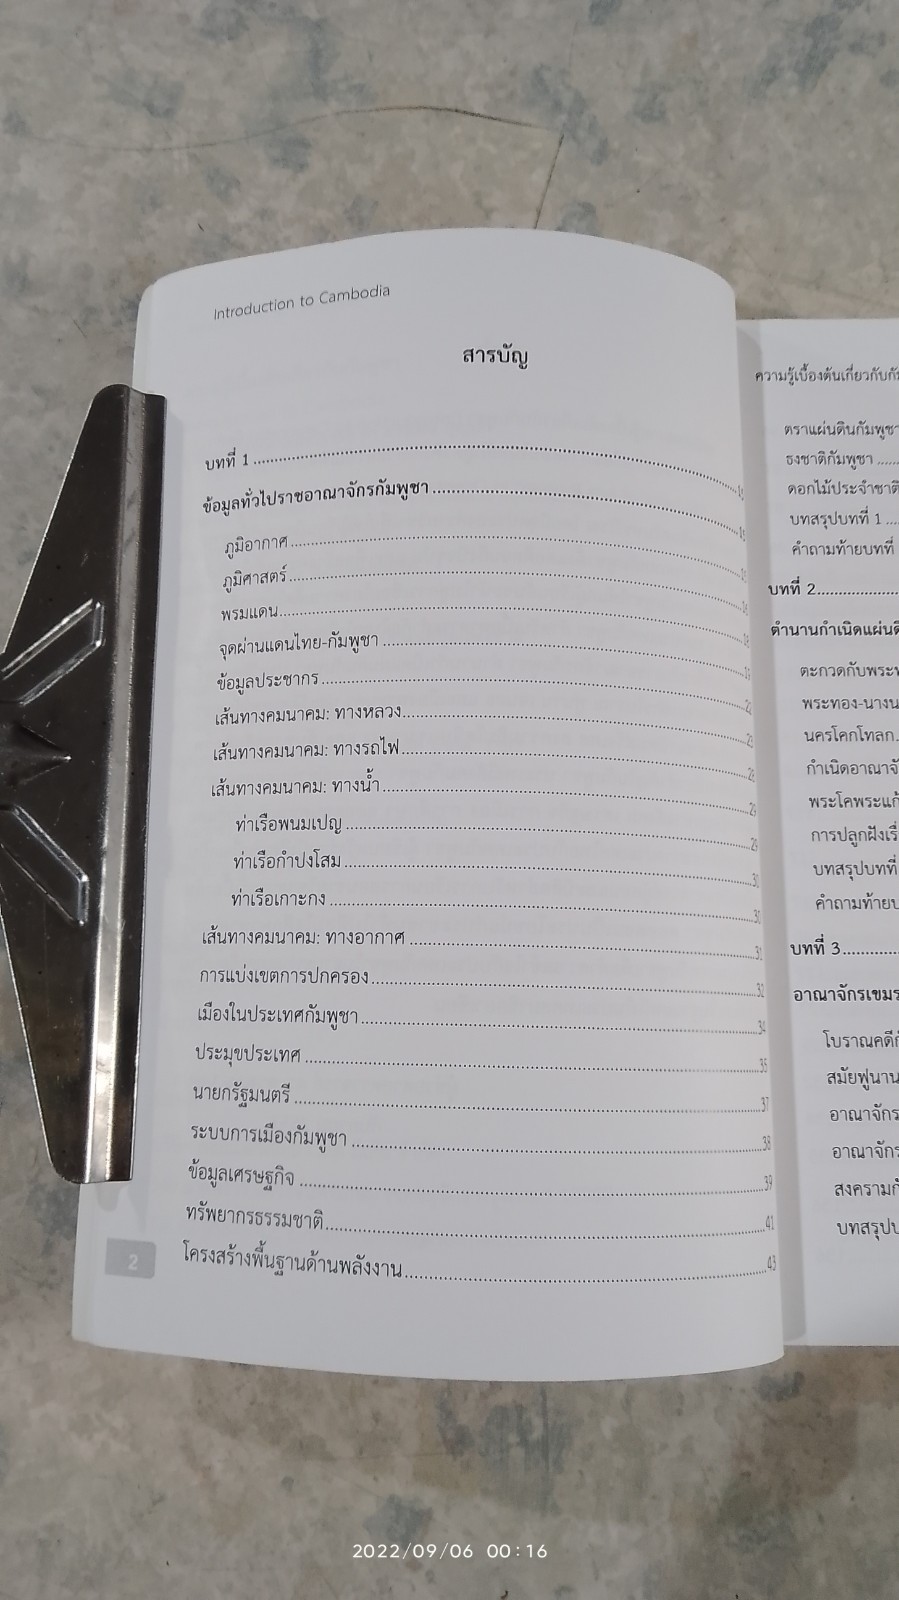 Introduction to Cambodia
สารบัญ
บทที่ 1
ข้อมูลทั่วไปราชอาณาจักรกัมพูชา
ภูมิอากาศ
ภูมิศาสตร์
พรมแดน
จุดผ่านแดนไทย-กัมพูชา
ข้อมูลประชากร
เส้นทางคมนาคม: ทางหลวง
เส้นทางคมนาคม: ทางรถไฟ
เส้นทางคมนาคม: ทางน้ำ
ท่าเรือพนมเปญ
ท่าเรือกำปงโสม
ท่าเรือเกาะกง
เส้นทางคมนาคม: ทางอากาศ
การแบ่งเขตการปกครอง
เมืองในประเทศกัมพูชา ... 34
ประมุขประเทศ ... 35
นายกรัฐมนตรี ... 37
ระบบการเมืองกัมพูชา ... 38
ข้อมูลเศรษฐกิจ ... 39
ทรัพยากรธรรมชาติ ... 41
โครงสร้างพื้นฐานด้านพลังงาน ... 43
2
ความรู้เบื้องต้นเกี่ยวกับ
ตราแผ่นดินกัมพูชา
ธงชาติกัมพูชา
ดอกไม้ประจำชาติ
บทสรุปบทที่ 1
คำถามท้ายบทที่
บทที่ 2
ตำนานกำเนิด
ตะกวดกับ
พระทอง-
นครโคกโทลก
กำเนิด
พระโคพระแก้
การปลูกฝัง
บทสรุปบทที่
คำถามท้าย
บทที่ 3
อาณาจักร
โบราณคดี
สมัยฟูนาน
อาณาจักร
อาณาจักร
สงคราม
2022/09/06 00:16